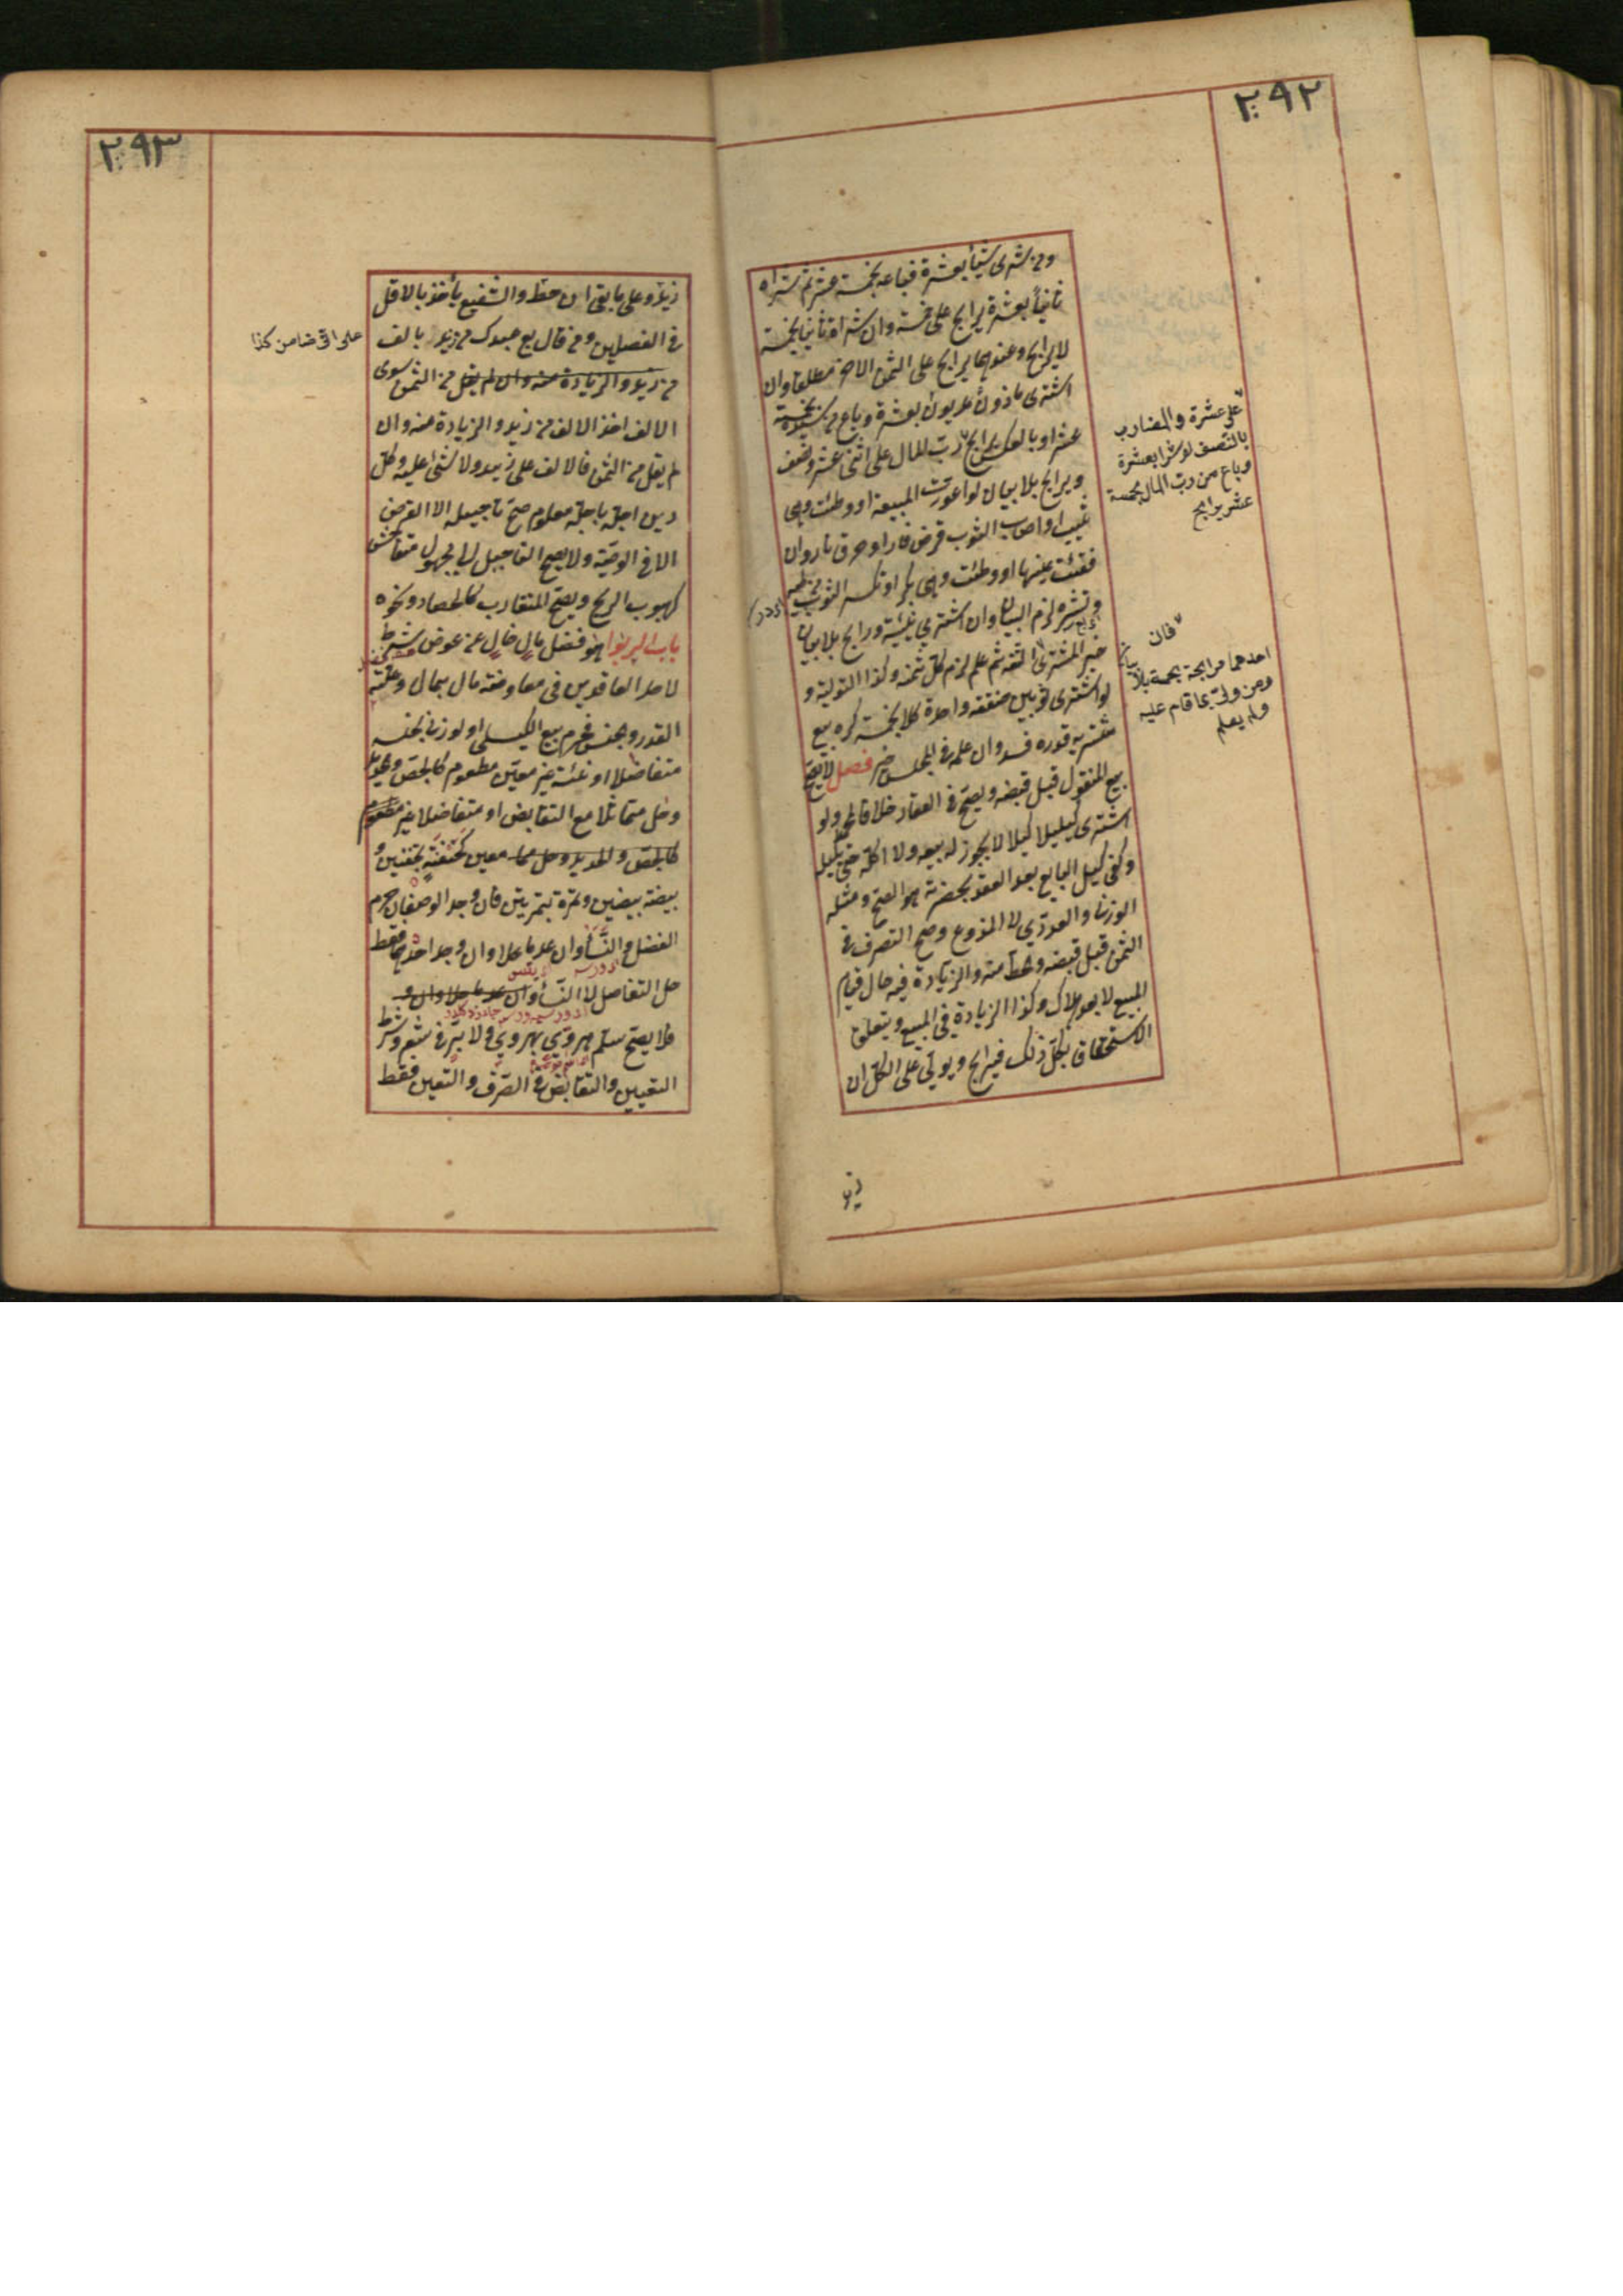 ٢٩٢
ومن شرى شيأ بعشرة فباعه بخمسة عشر ثم شراه
ثانياً بعشرة يرابح على خمسة وان شراه ثانيا بخمسة
لا يرابح وعندهما يرابح على الثمن الاخر مطلقا وان
اشترى مأذون مديون بعشرة وباع من سيده بخمسة
عشر او بالعكس يرابح رب المال على اثنى عشر ونصف
ويرابح بلا بيان لو اعورت المبيعة او وطئت وهى
ثيب او اصاب الثوب قرض فار او حرق نار وان
فقئت عينها او وطئت وهى بكر او تكسر الثوب من طيه
ونشره لزم البيان وان اشترى بنسيئة ورابح بلا بيان
خير المشترى اتلفه ثم علم لزم كل ثمنه وكذا التولية و
لو اشترى ثوبين صفقة واحدة كلا بخمسة كره بيع
مشتريه قدره فسد وان علمه فى المجلس خير فصل لا يصح
بيع المنقول قبل قبضه ويصح فى العقار خلافا لمحمد ولو
اشترى كيليا كيلا لا يجوز له بيعه ولا اكله حتى يكيله
وكفى كيل البايع بعد العقد بحضرته هو الصح ومثله
الوزنى والعددى لا المذروع وصح التصرف فى
الثمن قبل قبضه وحط منه والزيادة فيه حال قيام
المبيع لا بعد هلاك وكذا الزيادة فى المبيع ويتعلق
الاستحقاق بكل ذلك فيرابح ويولى على الكل ان
زيد
على عشرة والمضارب
بالنصف لو شرا بعشرة
وباع من رب المال بخمسة
عشر يرابح
فان
احدهما مرابحة بخمسة بلا بيانه
ومن ولى بما قام عليه
ولم يعلم
٢٩٣
زيد وعلى ما بقى ان حط والشفيع يأخذ بالاقل
فى الفصلين ومن قال بع عبدك من زيد بالف
على انى ضامن كذا
من زيد والزيادة منه وان لم يقل من الثمن سوى
الالف اخذ الالف من زيد والزيادة منه وان
لم يقل من الثمن فالالف على زيد ولا شئ عليه وكل
دين اجل باجل معلوم صح تاجيله الا القرض
الا فى الوصية ولا يصح التاجيل الى مجهول متفاحش
كهبوب الريح ويصح المتقارب كالحصاد ونحوه
باب الربوا هو فضل مال خال عن عوض شرط
لاحد العاقدين فى معاوضة مال بمال وعلته
القدر والجنس فحرم بيع الكيلى او لوزنى بجنسه
متفاضلا او نسئة غير معين مطعوم كالجص والحديد
وحل متماثلا مع التقابض او متفاضلا غير مطعوم
كالجص والحديد وحل مما معين كحفنة بحفنتين و
بيضة ببيضتين وتمرة بتمرتين فان وجد الوصفان حرم
الفضل والنسأ وان عدما حلا وان وجد احدهما فقط
حل التفاضل لا النسأ وان عدما حلا وان و
فلا يصح سلم هروى بهروى ولا بر فى شعير وشرط
التعيين والتقابض فى الصرف والتعين فقط